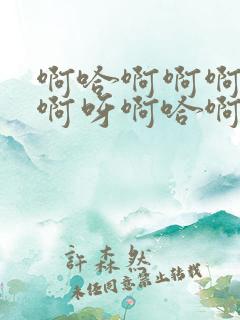 啊哈啊啊啊
啊呀啊哈啊
許森然
未经同意禁止转载